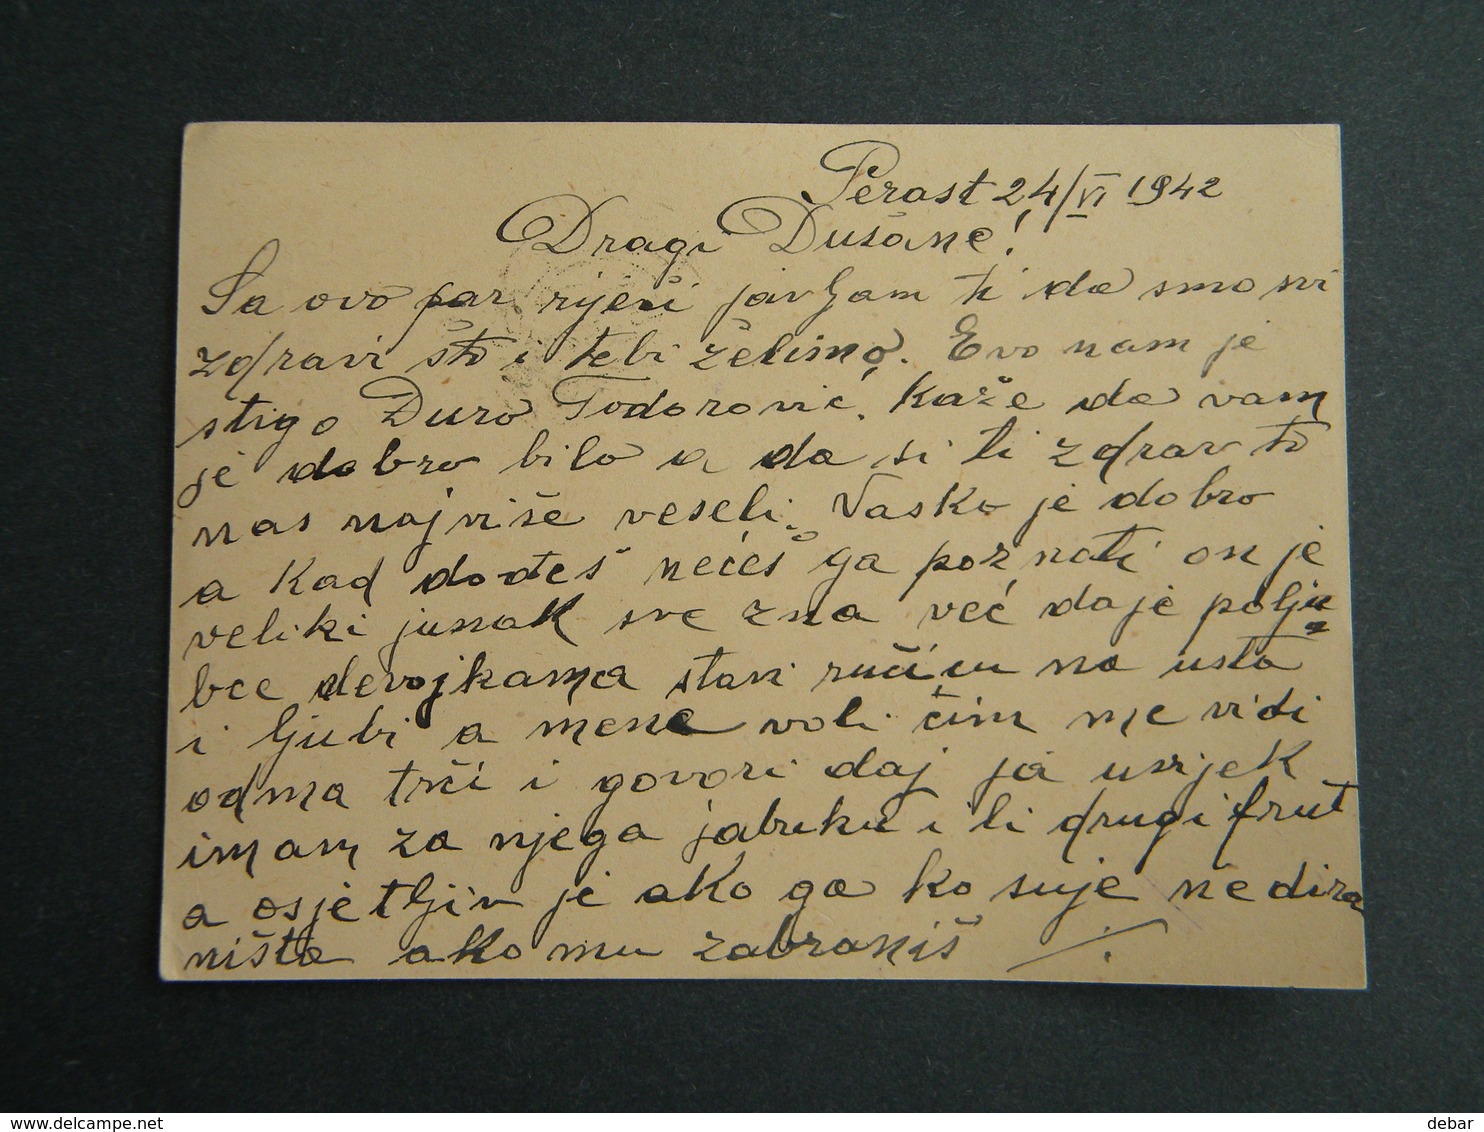 Perast 24/VI 1942
Dragi Dušane!
Sa ovo par riječi javljam ti da smo svi
zdravi što i tebi želimo. Evo nam je
stigo Đuro Todorović. Kaže da vam
je dobro bilo a da si ti zdrav to
nas najviše veseli. Vasko je dobro
a kad dođeš nećeš ga poznati on je
veliki junak sve zna već daje polju=
bce devojkama stavi ručicu na usta
i ljubi a mene voli čim me vidi
odma trči i govori daj ja uvijek
imam za njega jabuku i li drugi frut
a osjetljiv je ako ga ko suje ne dira
ništa ako mu zabraniš ./.
debar